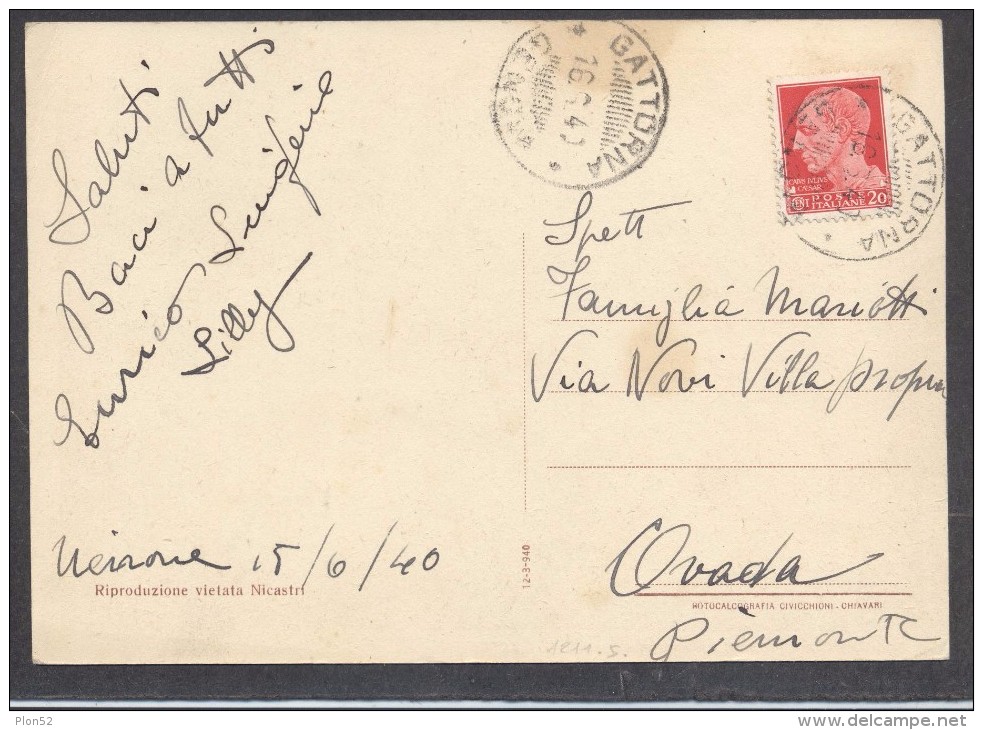 Saluti
Baci a tutti
Enrico
Lilly
Neirone 15/6/40
Riproduzione vietata Nicastri
12-3-940
GATTORNA
* GENOVA *
16.6.40
GATTORNA
CAIVS IVLIVS
CAESAR
CENT POSTE 20
ITALIANE
Spett
Famiglia Mariotti
Via Novi Villa propria
Ovada
ROTOCALCOGRAFIA CIVICCHIONI - CHIAVARI
Piemonte
1211.S.
Plon52
www.delcampe.net